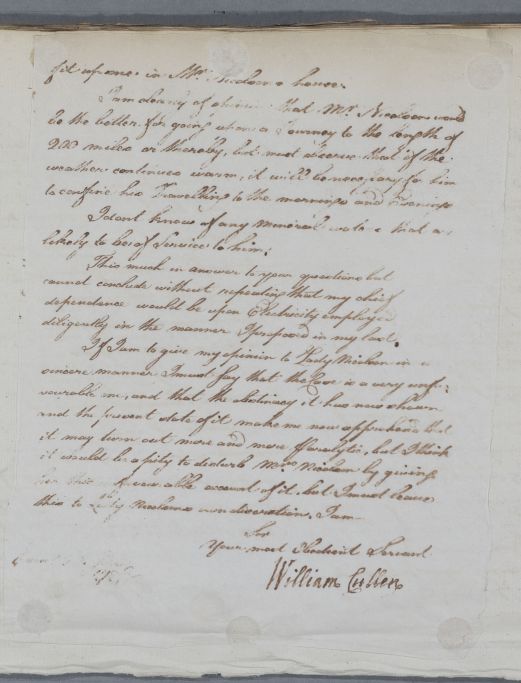 fit up one in Mr. Nicolson's house.
I am clearly of opinion that Mr. Nicolson would
be the better for going upon a Journey to the length of
200 miles or thereby, but must observe that if the
weather continues warm, it will be necessary for him
to confine his Travelling to the mornings and Evenings
I dont know of any Mineral water that is
likely to be of Service to him;
This much in answer to your questions but
cannot conclude without repeating that my chief
dependence would be upon Electricity employed
diligently in the manner I proposed in my last.
If I am to give my opinion to Lady Nicolson in a
sincere manner I must say that the case is a very unfa=
vourable one, and that the obstinacy it has now shown
and the present state of it make me now apprehend that
it may turn out more and more Paralytic, but I think
it would be a pity to disturb Mrs. Nicolson by giving
her this unfavourable account of it, but I must leave
this to Lady Nicolsons own discretion. I am
Sir
Your most Obedient Servant
William Cullen